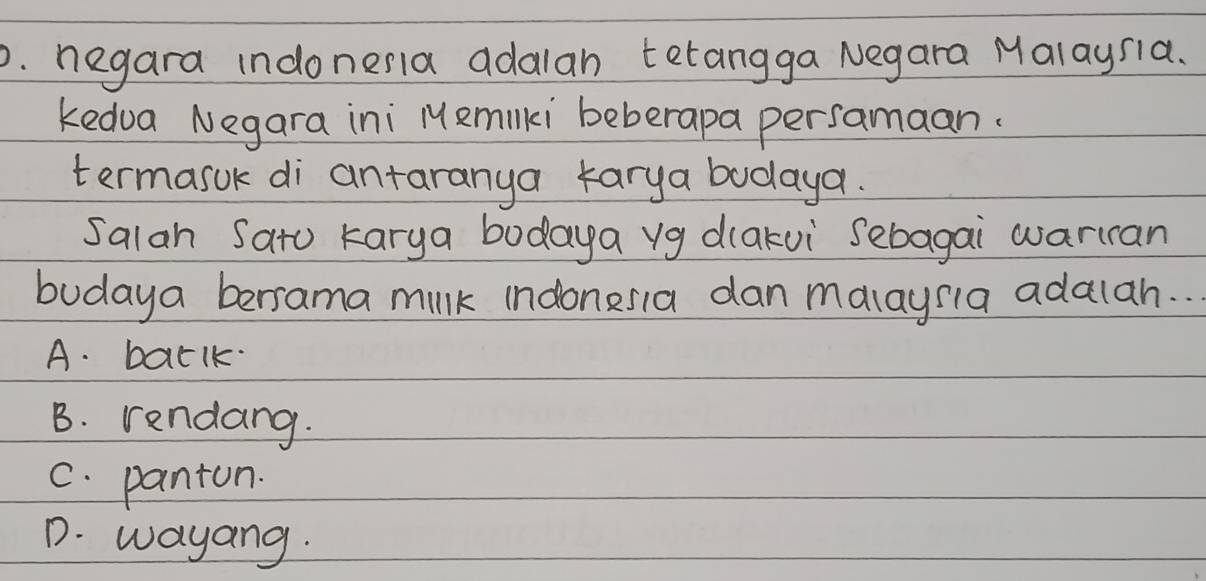 . negara indonesia adalah tetangga Negara Malaysia.
Kedua Negara ini Memiliki beberapa persamaan.
termasuk di antaranya karya budaya.
Salah Satu karya budaya yg diakui Sebagai warisan
budaya bersama milik indonesia dan malaysia adalah...
A. batik.
B. rendang.
C. pantun.
D. wayang.